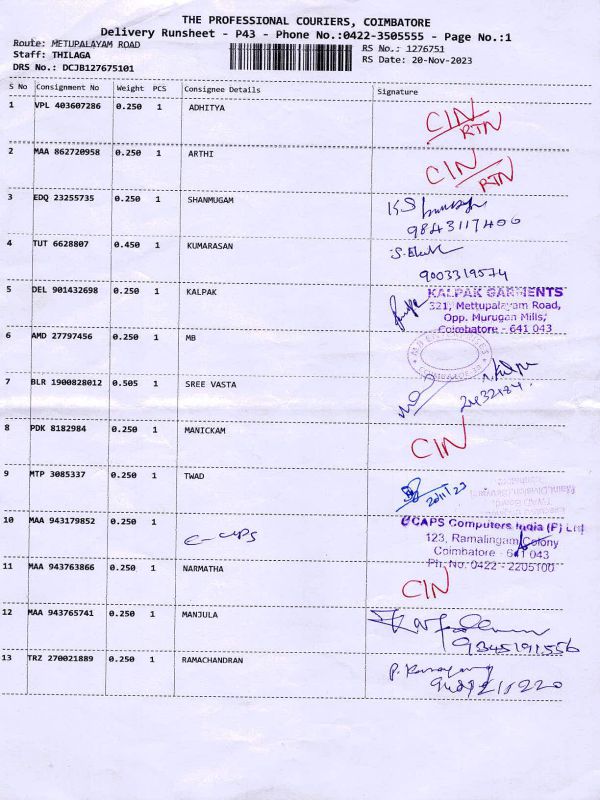 THE PROFESSIONAL COURIERS, COIMBATORE
Delivery Runsheet - P43 - Phone No.:0422-3505555 - Page No.:1
Route: METUPALAYAM ROAD
RS No.: 1276751
Staff: THILAGA
RS Date: 20-Nov-2023
DRS No.: DCJB127675101
S No Consignment No Weight PCS Consignee Details Signature
1 VPL 403607286 0.250 1 ADHITYA CIN/RTN
2 MAA 862720958 0.250 1 ARTHI CIN/RTN
3 EDQ 23255735 0.250 1 SHANMUGAM
9843117400
4 TUT 6628807 0.450 1 KUMARASAN
9003319574
5 DEL 901432698 0.250 1 KALPAK KALPAK GARMENTS
321, Mettupalayam Road,
Opp. Murugan Mills,
Coimbatore - 641 043
6 AMD 27797456 0.250 1 MB
7 BLR 1900828012 0.505 1 SREE VASTA
8 PDK 8182984 0.250 1 MANICKAM CIN
9 MTP 3085337 0.250 1 TWAD
20/11/23
10 MAA 943179852 0.250 1 C-CAPS
CCAPS Computers India (P) Ltd
123, Ramalingam Colony
Coimbatore - 641 043
Ph. No. 0422 - 2205100
11 MAA 943763866 0.250 1 NARMATHA CIN
12 MAA 943765741 0.250 1 MANJULA
9345191556
13 TRZ 270021889 0.250 1 RAMACHANDRAN